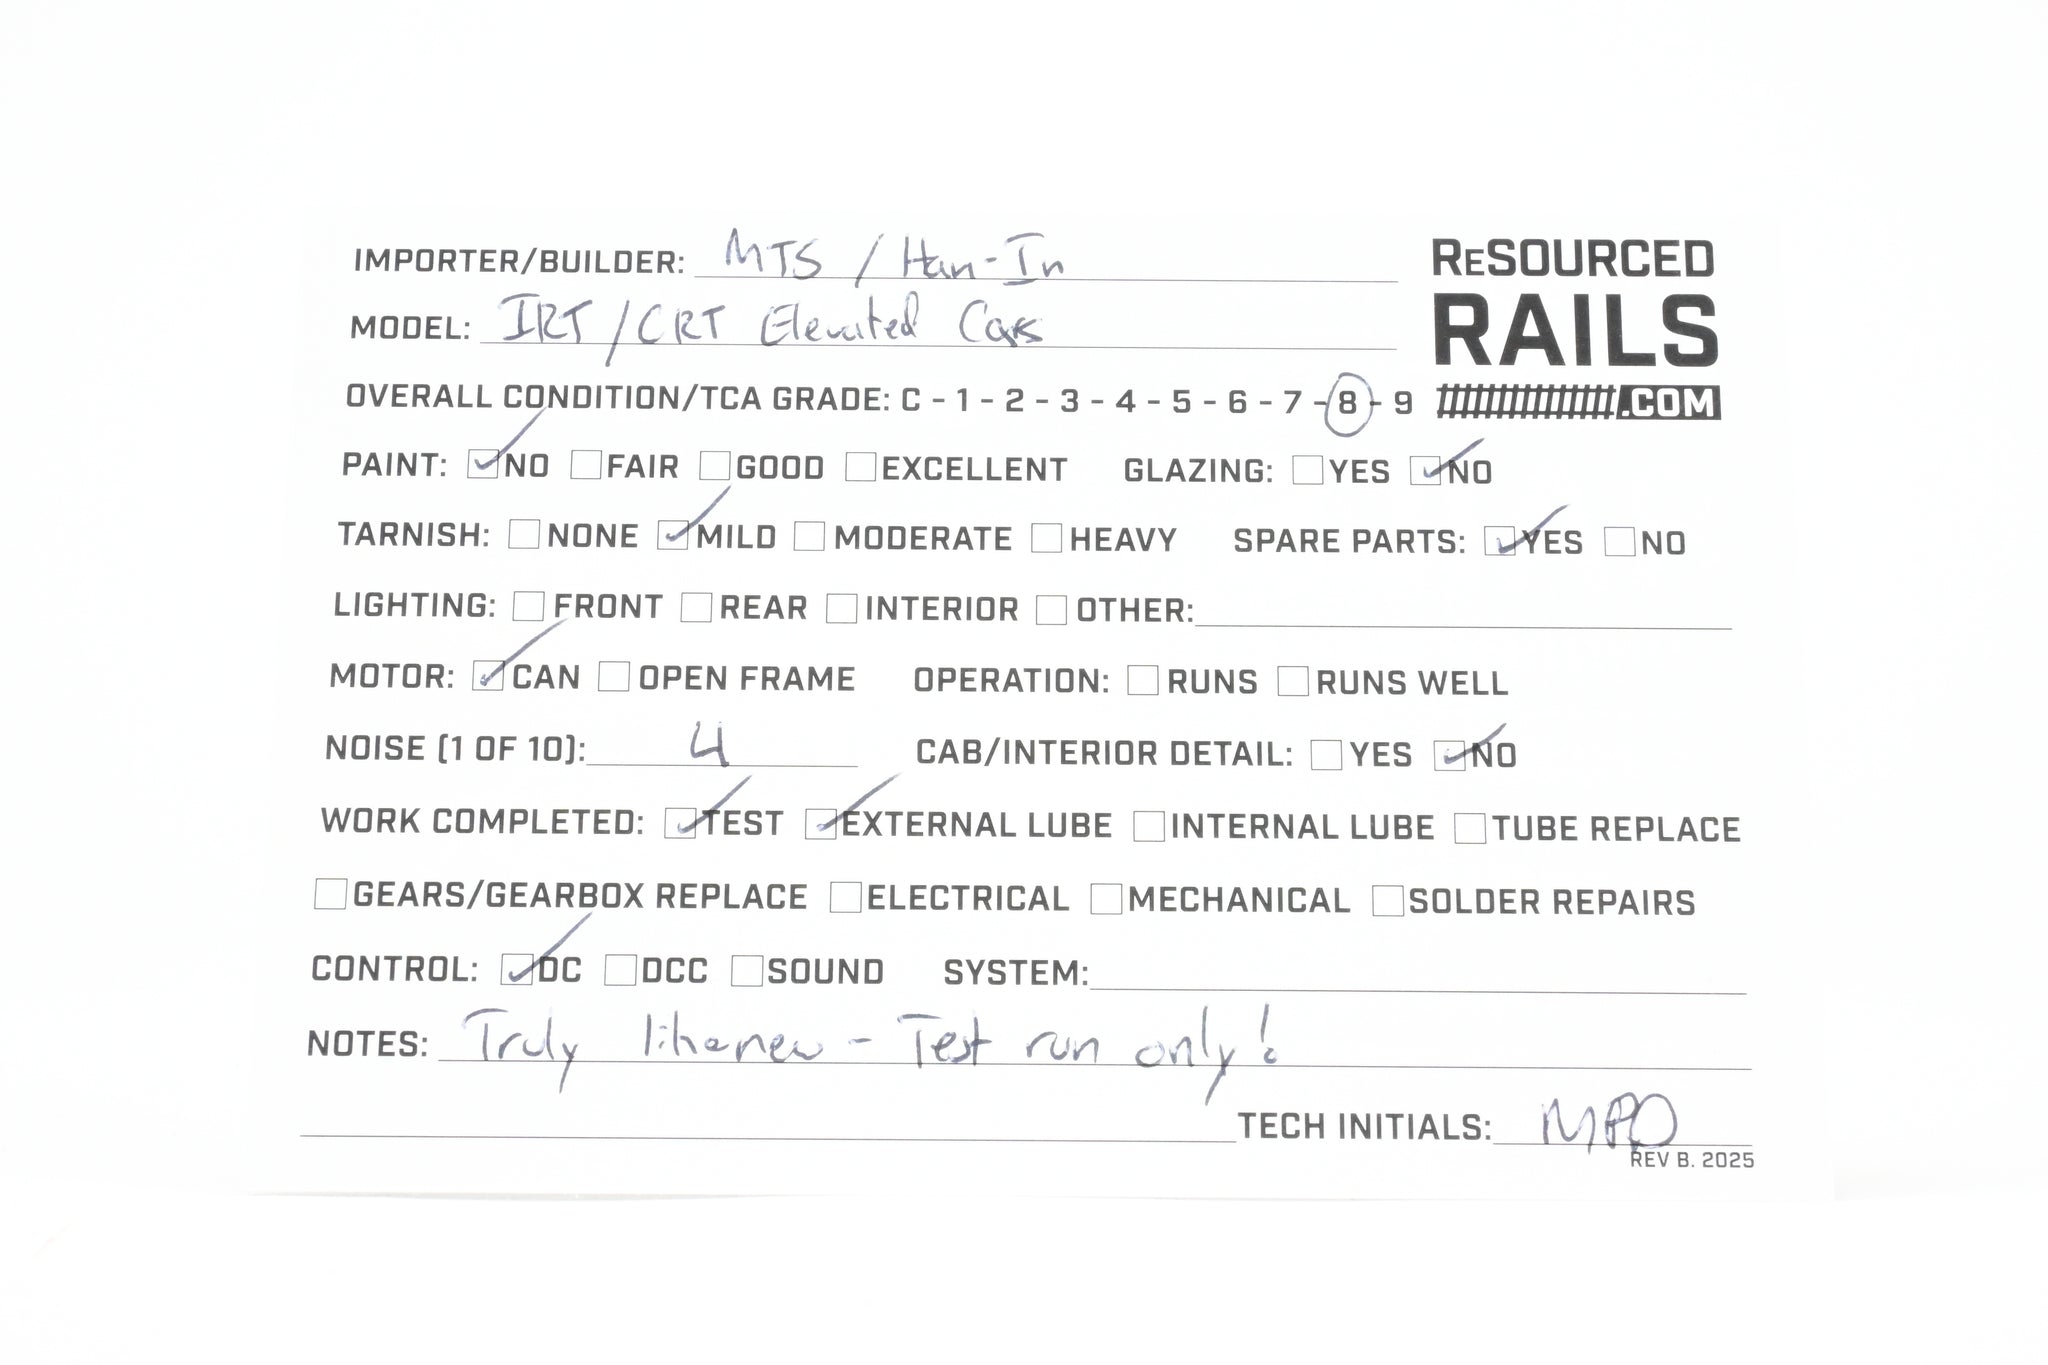 IMPORTER/BUILDER: MTS / Han-In
RESOURCED
RAILS
.COM
MODEL: IRT/CRT Elevated Cars
OVERALL CONDITION/TCA GRADE: C - 1 - 2 - 3 - 4 - 5 - 6 - 7 - 8 - 9
PAINT: ☑NO ☐FAIR ☐GOOD ☐EXCELLENT GLAZING: ☐YES ☑NO
TARNISH: ☐NONE ☑MILD ☐MODERATE ☐HEAVY SPARE PARTS: ☑YES ☐NO
LIGHTING: ☐FRONT ☐REAR ☐INTERIOR ☐OTHER:
MOTOR: ☑CAN ☐OPEN FRAME OPERATION: ☐RUNS ☐RUNS WELL
NOISE (1 OF 10): 4 CAB/INTERIOR DETAIL: ☐YES ☑NO
WORK COMPLETED: ☑TEST ☑EXTERNAL LUBE ☐INTERNAL LUBE ☐TUBE REPLACE
☐GEARS/GEARBOX REPLACE ☐ELECTRICAL ☐MECHANICAL ☐SOLDER REPAIRS
CONTROL: ☑DC ☐DCC ☐SOUND SYSTEM:
NOTES: Truly like new - Test run only!
TECH INITIALS:
REV B. 2025